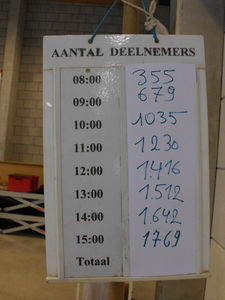 AANTAL DEELNEMERS
08:00 355
09:00 679
10:00 1035
11:00 1230
12:00 1.416
13:00 1.512
14:00 1.642
15:00 1769
Totaal